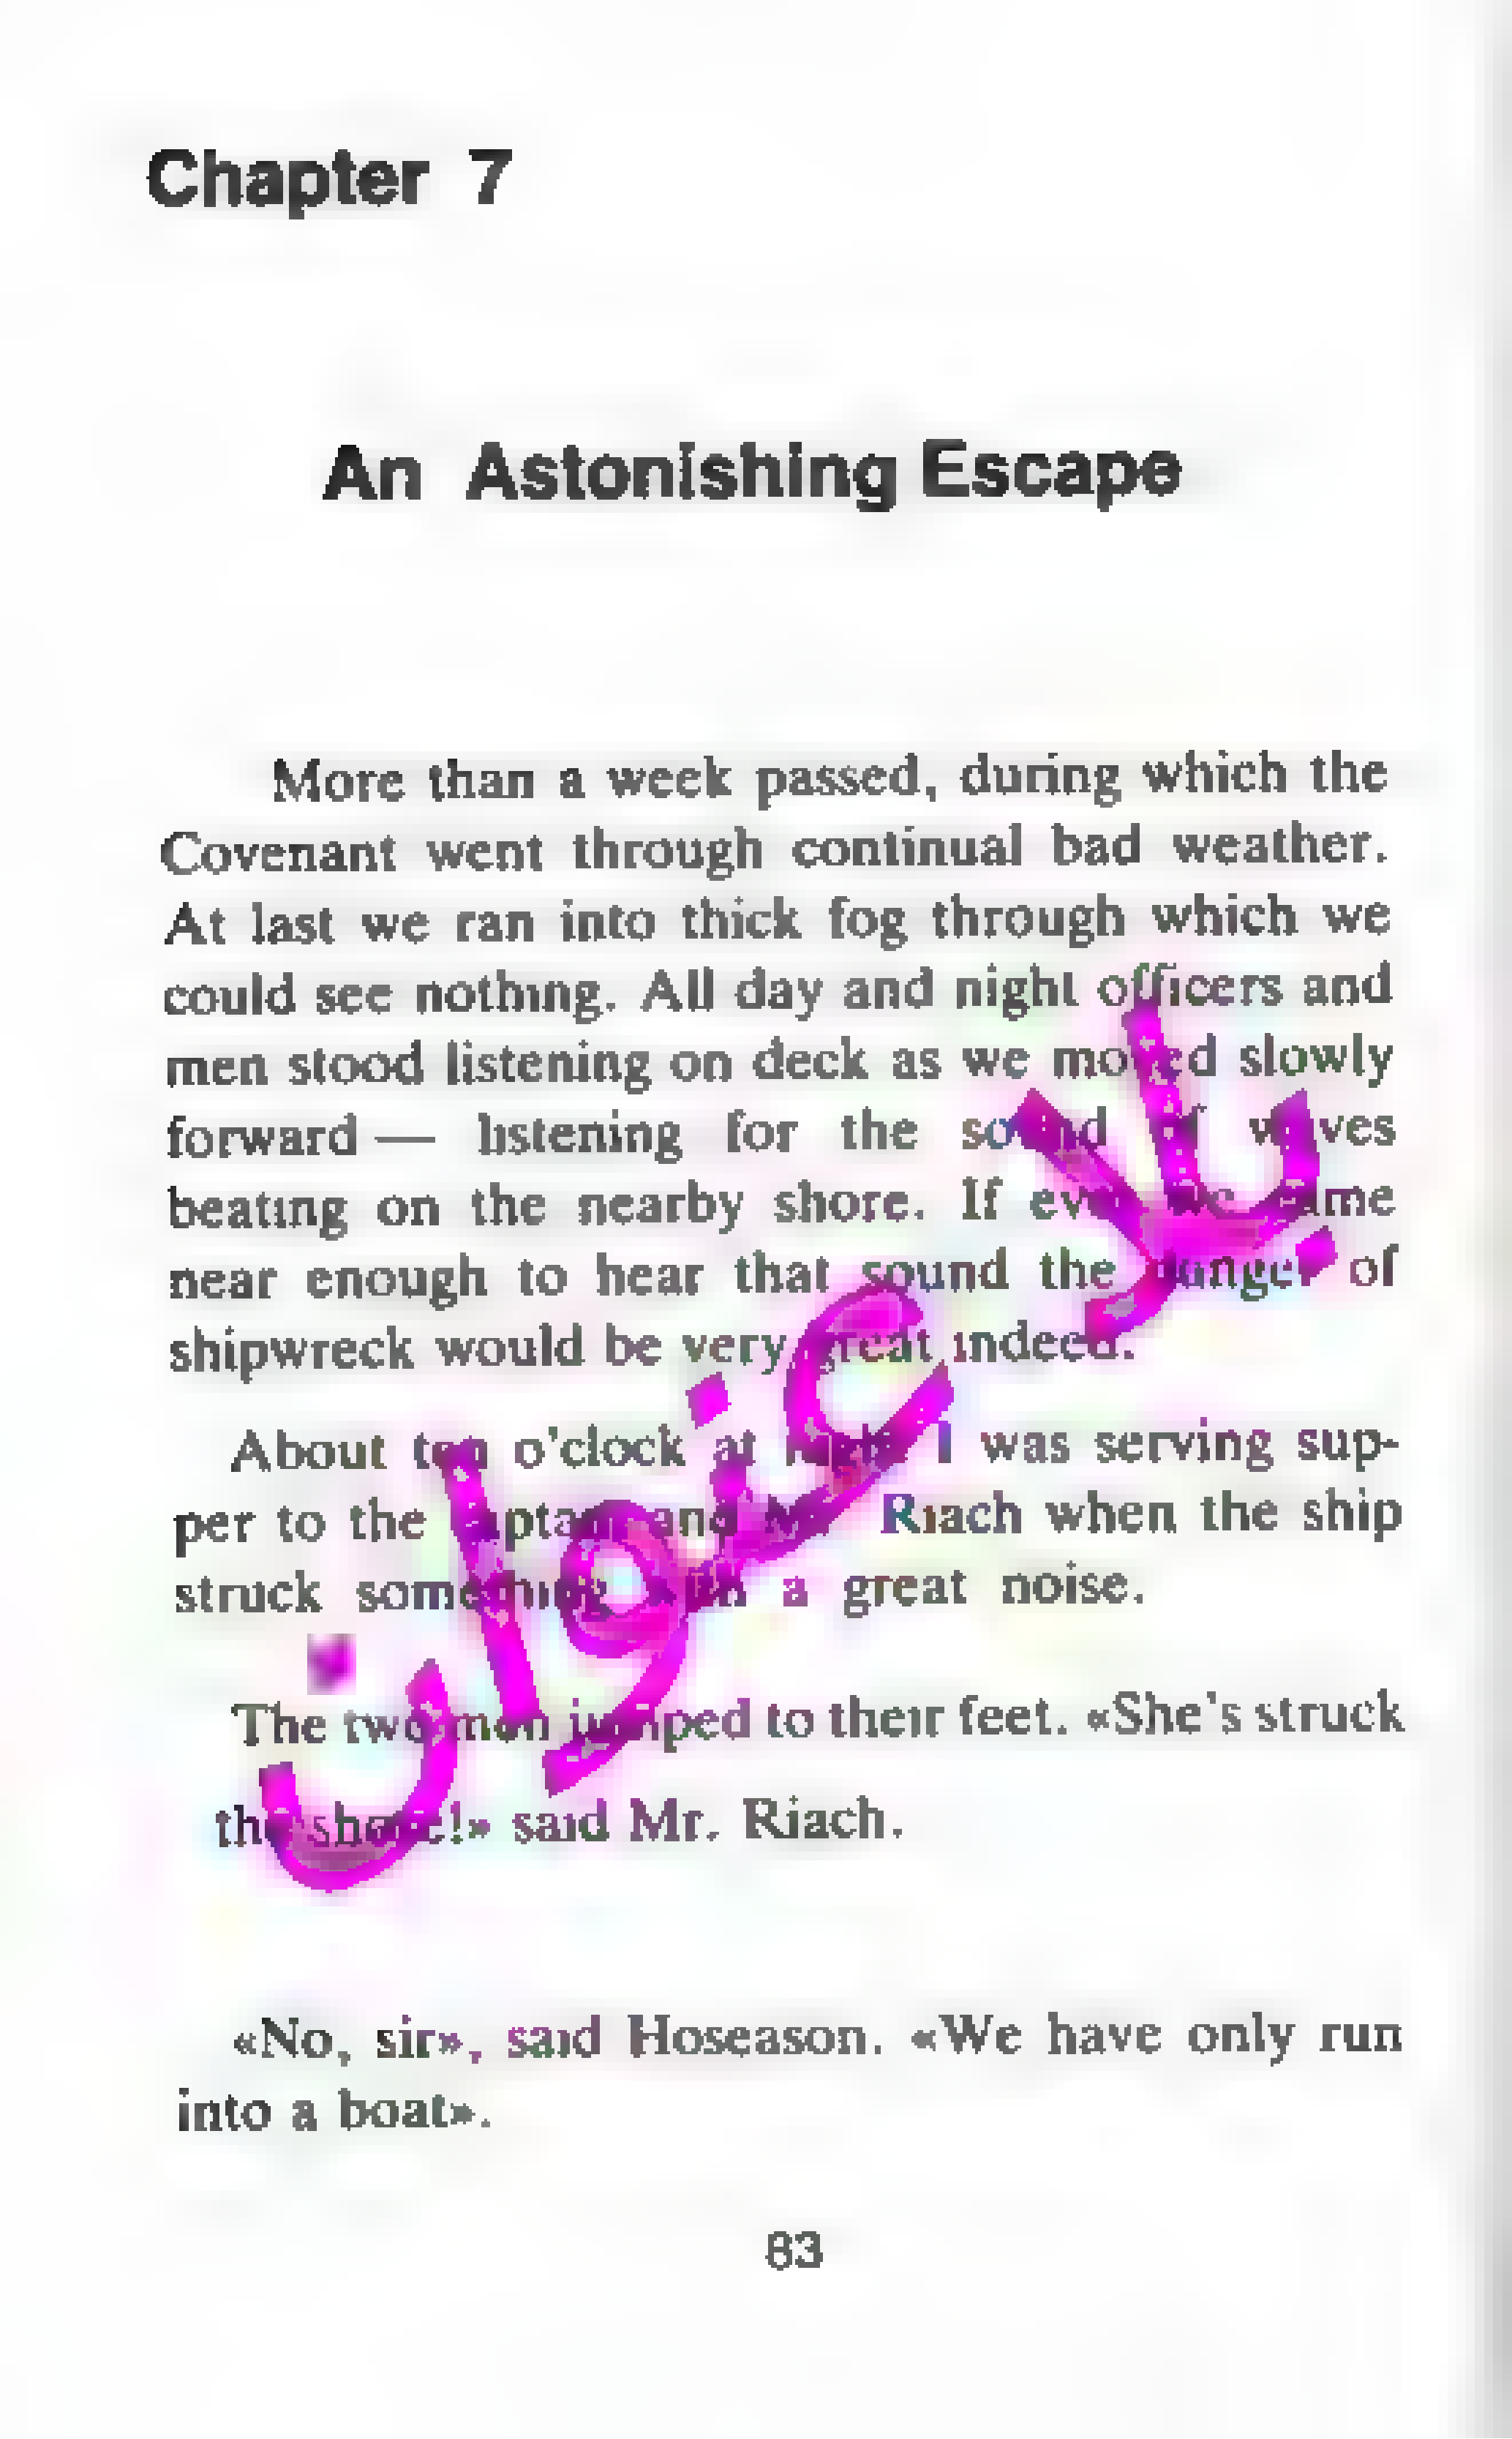 Chapter 7
An Astonishing Escape
More than a week passed, during which the
Covenant went through continual bad weather.
At last we ran into thick fog through which we
could see nothing. All day and night officers and
men stood listening on deck as we moved slowly
forward — listening for the sound of waves
beating on the nearby shore. If ever we came
near enough to hear that sound the danger of
shipwreck would be very great indeed.
About ten o'clock at night I was serving sup-
per to the captain and Mr. Riach when the ship
struck something with a great noise.
The two men jumped to their feet. «She's struck
the shore!» said Mr. Riach.
«No, sir», said Hoseason. «We have only run
into a boat».
83
بلا عنوان